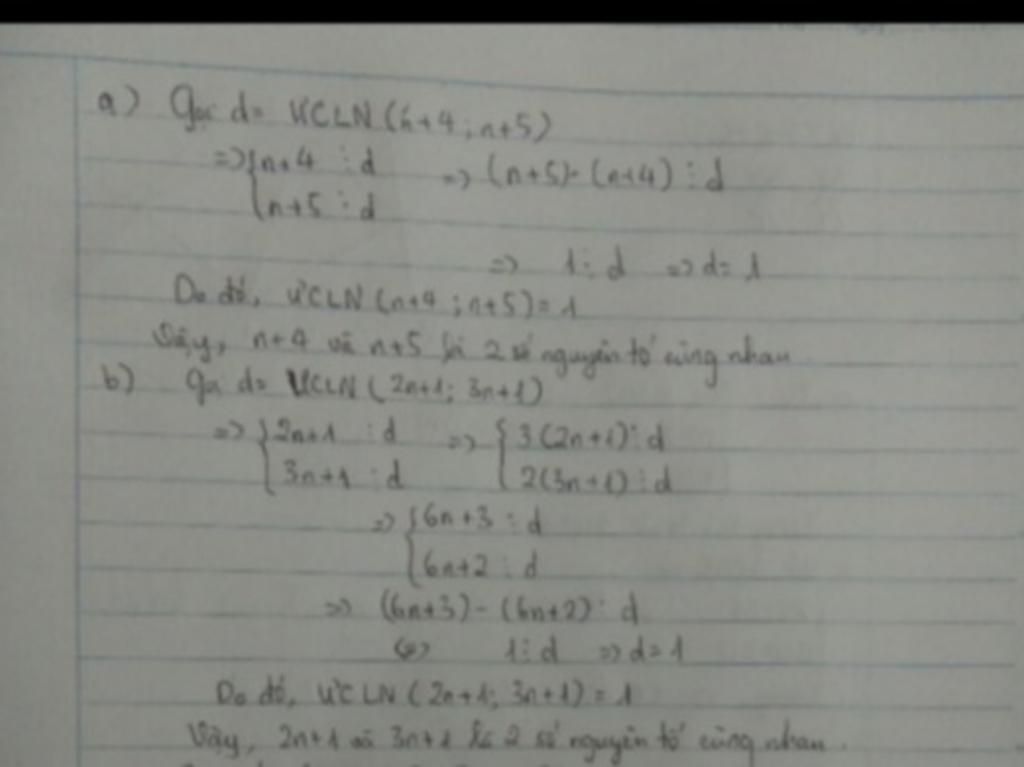 a) Gọi d= ƯCLN (n+4 ; n+5)
=> { n+4 ⋮ d => (n+5) - (n+4) ⋮ d
n+5 ⋮ d
=> 1 ⋮ d => d= 1
Do đó, ƯCLN (n+4 ; n+5) = 1
Vậy, n+4 và n+5 là 2 số nguyên tố cùng nhau
b) Gọi d= ƯCLN (2n+1; 3n+1)
=> { 2n+1 ⋮ d => { 3(2n+1) ⋮ d
3n+1 ⋮ d 2(3n+1) ⋮ d
=> { 6n+3 ⋮ d
6n+2 ⋮ d
=> (6n+3) - (6n+2) ⋮ d
<=> 1 ⋮ d => d=1
Do đó, ƯCLN (2n+1; 3n+1) = 1
Vậy, 2n+1 và 3n+1 là 2 số nguyên tố cùng nhau.